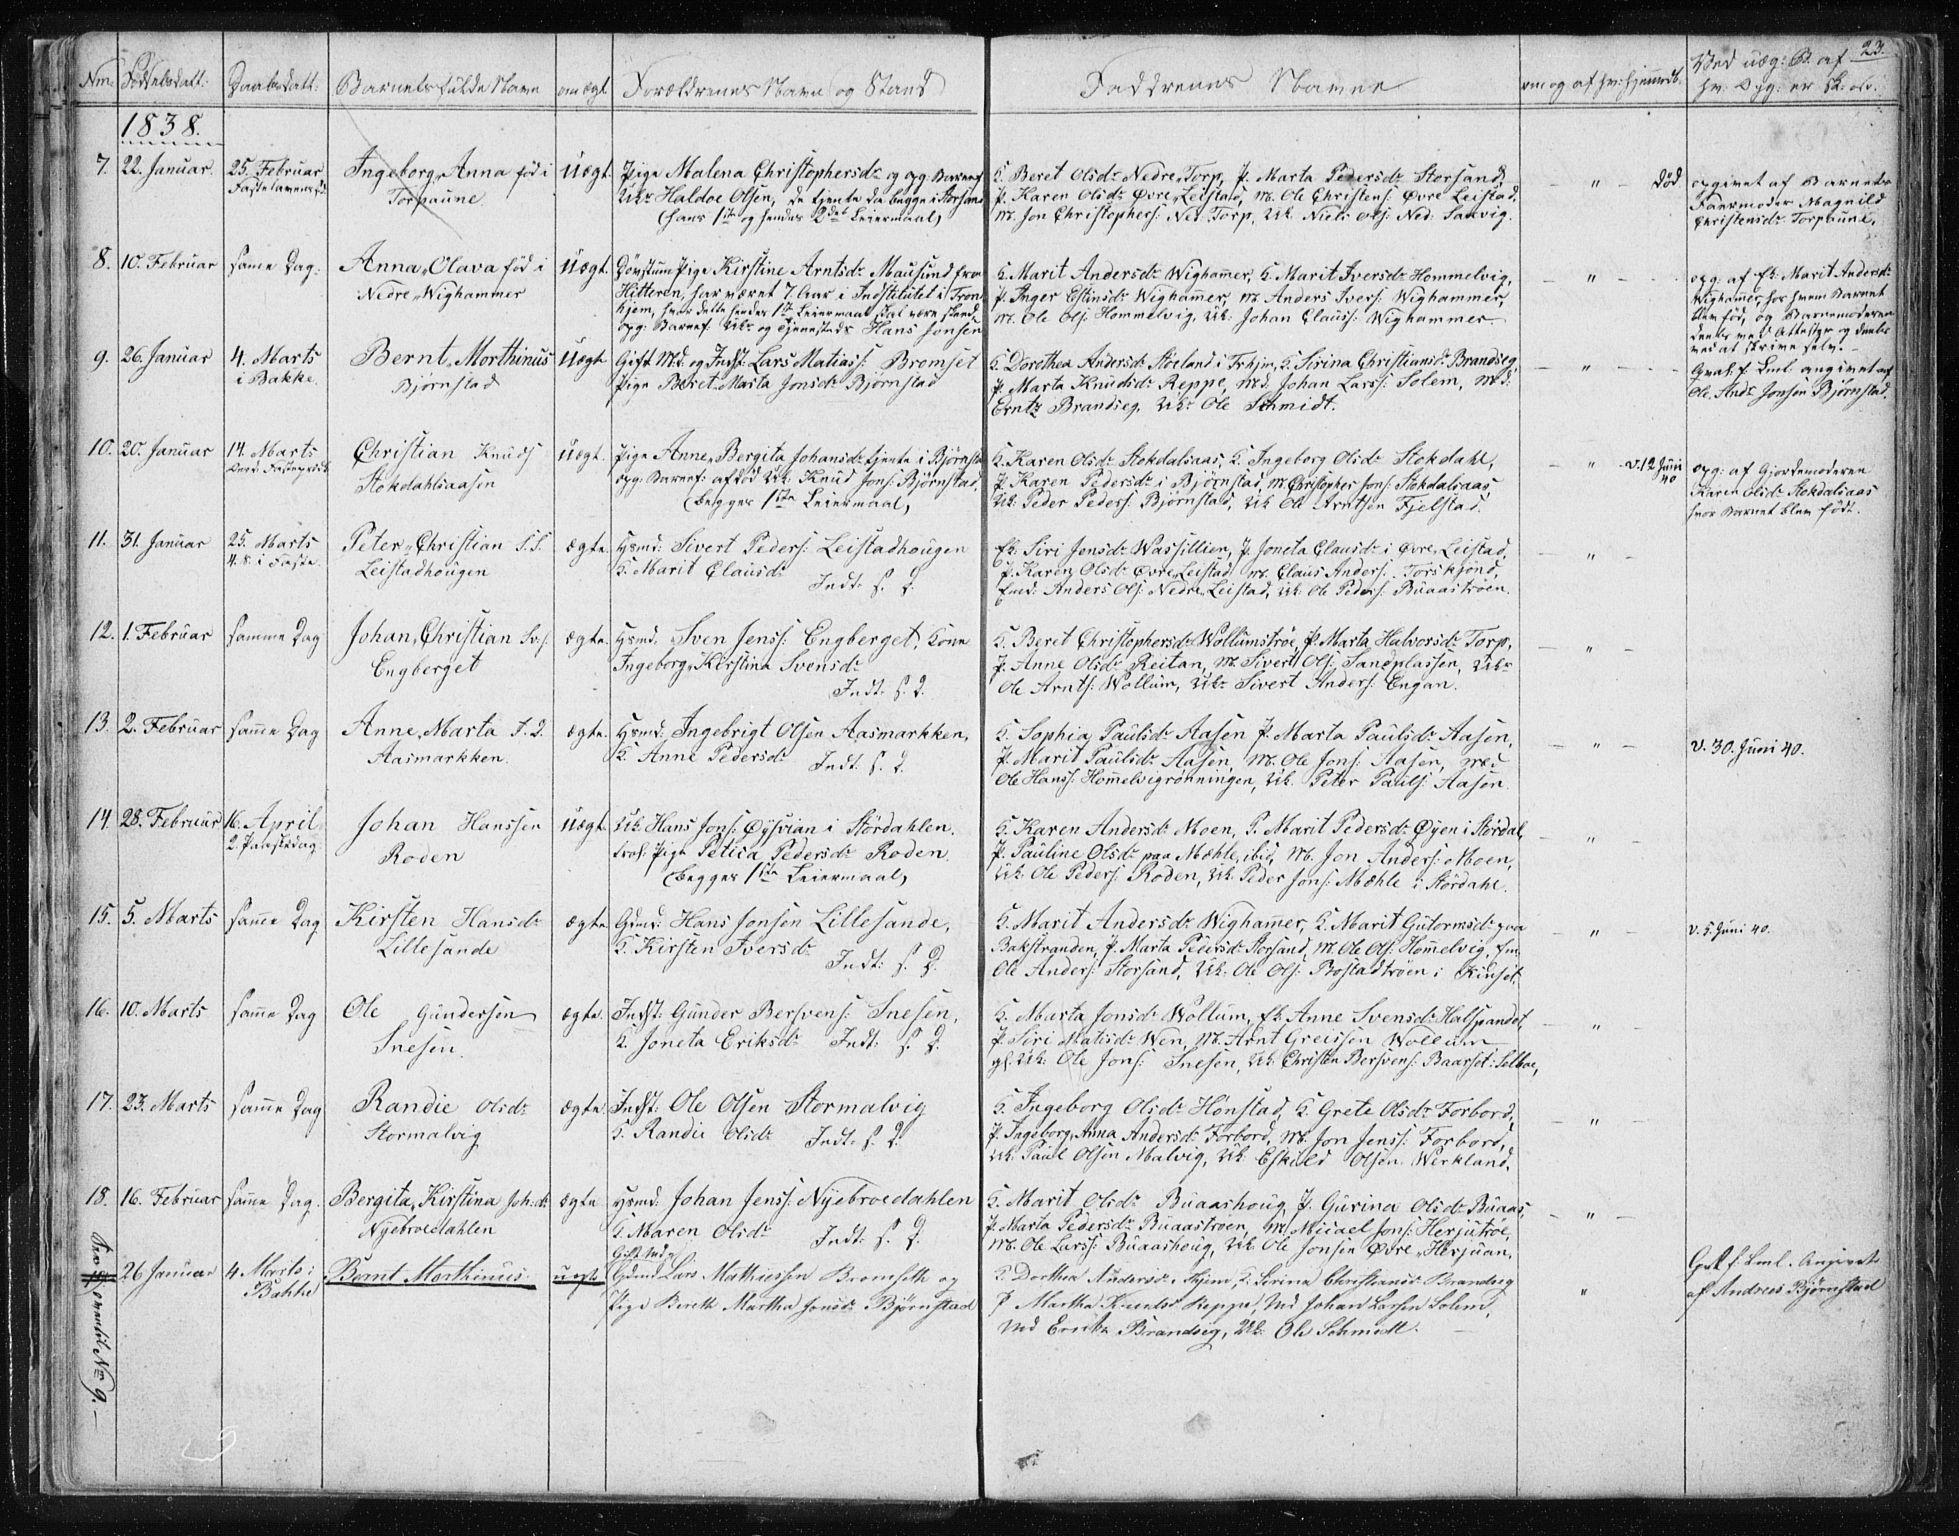 23.
Nm. Fødselsdatt: Daabsdatt: Barnets fulde Navn om ægt. Forældrenes Navn og Stand Faddrenes Navne om og af hv: hjemmedb. Ved uæg: B. af hv: Opg: er
1838.
7. 22. Januar. 25. Februar Fastelavens Ingeborg Anna fød i Torpaune uægt. Pige Malena Christophersdr og opg Barnef.
Uk: Haldoe Olsen, de tjente da begge i Storsand
(hans 1ste og hendes 2det Leiermaal)
K. Beret Olsdr Nedre Torp, P. Marta Pedersdr Storsand,
P. Karen Olsdr Øvre Leistad, M. Ole Christens: Øvre Leistad,
M. Jon Christophers: Ned. Torp, Uk. Niels Ols: Ned. Saxvig.
— " — død
opgivet af Barnets
Faermoder Magnild
Christensdr Torpaune.
8. 10. Februar same Dag: Anna Olava fød i Nedre Wighammer uægt. Døvstum Pige Kirstine Arntsdr Mausund fra
Hitteren, har været 7 Aar i Institutet i Tron-
hjem, hvor dette hendes 1te Leiermaal skal være skeed
opg: Barnef: Uk: og Tjenestedr Hans Jonsen
K. Marit Andersdr Wighamer, K. Marit Iversdr Hommelvig,
P. Inger Estinsdr Wighamer, M. Anders Ivers: Wighammer,
M. Ole Ols: Hommelvig, Uk: Johan Clauss: Wighammer.
— "
opg. af K: Marit Andersdr
Wighamer, hos hvem Barnet
blev fød, og Barnemoderen
deels ved Attester og deels
ved at skrive selv.
9. 26. Januar 4. Marts i Bakke. Bernt Morthinus Bjørnstad uægt Gift Md. og Indst: Lars Matiass: Bromset
Pige Beret Marta Jonsdr Bjørnstad
K. Dorothea Andersdr Stoeland i Trhjm, K. Sirina Christiansdr Brandseg,
P. Marta Knudsdr Reppe, Md. Johan Larss: Solem, Md:
Erntz Brandseg, Uk: Ole Schmidt.
— " —
Qval: f. Lml angivet af
Ole Andr Jonsen Bjørnstad.
10. 20. Januar 14. Marts Christian Knuds: Stokdahlsaasen uægt. Pige Anne Bergita Johansdr tjente i Bjørnsta
opg: Barnef: afdød Uk Knud Jons: Bjørnstad,
(begges 1ste Leiermaal)
K. Karen Olsdr Stokdalsaas, K. Ingeborg Olsdr Stokdahl,
P. Karen Pedersdr i Bjørnstad, M. Christopher Jons: Stokdalsaas,
Uk. Peder Peders: Bjørnstad, Uk Ole Arntsen Fjelstad.
— " — v. 12 Juni 40
opg: af Gjordemoderen
Karen Olsdr Stokdalsaas
hvor Barnet blev født.
11. 31. Januar 25. Marts 4. S. i Faste. Peter Christian S.S. Leistadhougen ægte. Hsmd: Sivert Peders: Leistadhougen
K. Marit Clausdr Indt: s. D.
Ek: Siri Jensdr Wassillien, P. Joneta Clausdr i Øvre Leistad,
P. Karen Olsdr Øvre Leistad, M. Claus Anders: Torskjønd,
Emd: Anders Ols: Nedre Leistad, Uk: Ole Peders: Buaastrøen.
— " —
12. 1. Februar samme Dag Johan Christian Sv.s. Engberget ægte. Hsmd: Sven Jenss: Engberget, Kone
Ingeborg Kirstina Svensdr
Indt: s. D.
K. Beret Christophersdr Wollumstrøe, P. Marta Halvorsdr Torp,
P. Anne Olsdr Reitan, M. Sivert Ols: Sandplassen, Uk:
Ole Arnts: Wollum, Uk: Sivert Anders: Engan.
— " —
13. 2. Februar same Dag Anne Marta I. D. Aasmarkken. ægte. Hsmd: Ingebrigt Olsen Aasmarkken,
K. Anne Pedersdr Indt: s. D.
K. Sophia Paulsdr Aasen P. Marta Paulsdr Aasen,
P. Marit Paulsdr Aasen, M. Ole Jons: Aasen, Md
Ole Hanss: Homelvigrønningen, Uk. Peter Pauls: Aasen.
— " —
v. 30. Juni 40.
14. 28. Februar 16. April 2. Paaskedag. Johan Hanssen Roden uægt. Uk. Hans Jons: Øysvian i Størdahlen.
Pige Petica Pedersdr Roden.
(begges 1ste Leiermaal)
K. Karen Andersdr Moen, P. Marit Pedersdr Øyen i Størdal,
P. Pauline Olsdr paa Mæhle, ibid, M. Jon Anders: Moen,
Uk. Ole Peders: Roden, Uk. Peder Jons: Mæhle i Størdahl.
— " —
15. 5. Marts same Dag Kirsten Hansdr Lillesande ægte. Gdmd: Hans Jonsen Lillesande,
K. Kirsten Iversdr Indt: s. D.
K. Marit Andersdr Wighamer, K. Marit Gutormsdr paa
Bakstranden, P. Marta Pedersdr Storsand, M. Ole Ols: Homelvig, Em.
Ole Anders: Storsand, Uk. Ole Ols: Rostadtrøen i Kinset.
— " —
v. 5. Juni 40.
16. 10. Marts same Dag Ole Gundersen Snesen. ægte. Indst: Gunder Bersvens: Snesen,
K. Joneta Eriksdr Indt: s. D.
K. Marta Jonsdr Wollum, Ek Anne Svensdr Halspandet,
P. Siri Matisdr Wen, M. Arnt Greissen Wollum
gl. Uk. Ole Jons: Snesen, Uk. Christen Bersvens: Baarset i Selboe,
— " —
17. 23. Marts same Dag Randie Olsdr Stormalvig ægte. Indst: Ole Olsen Stormalvig
K. Randie Olsdr Indt: s. D.
K. Ingeborg Olsdr Hønstad, K. Grete Olsdr Forbord,
P. Ingeborg Anna Andersdr Forbord, M. Jon Jenss: Forbord,
Uk. Paul Olsen Malvig, Uk. Eskild Olsen Werkland.
— " —
18. 16. Februar same Dag. Bergita Kirstina Joh: d: Nyebroedahlen ægte Hsmd: Johan Jenss: Nyebroedahlen
K. Maren Olsdr Indt: s. D.
K. Marit Olsdr Buaashoug, P. Gurina Olsdr Buaas,
P. Marta Pedersdr Buaastrøen, M. Micael Jons: Herjutrøe,
M. Ole Larss: Buaashoug, Uk. Ole Jonsen Øvre Herjuan.
— " —
No 9.
26 Januar 4 Marts i Bakke Bernt Morthinus uægt Gift Md
Gdmd Lars Mathiessen Bromseth og
Pige Bereth Martha Jonsdr Bjørnstad
K. Dorthea Andersdr Thjem, K. Serina Christiansdr Brandseg
P Martha Knudsd Reppe, Md Johan Larsen Solem,
Md Erntz Brandseg, Uk. Ole Schmidt.
"
Qval f. Lml. Angivet
af Andreas Bjørnstad